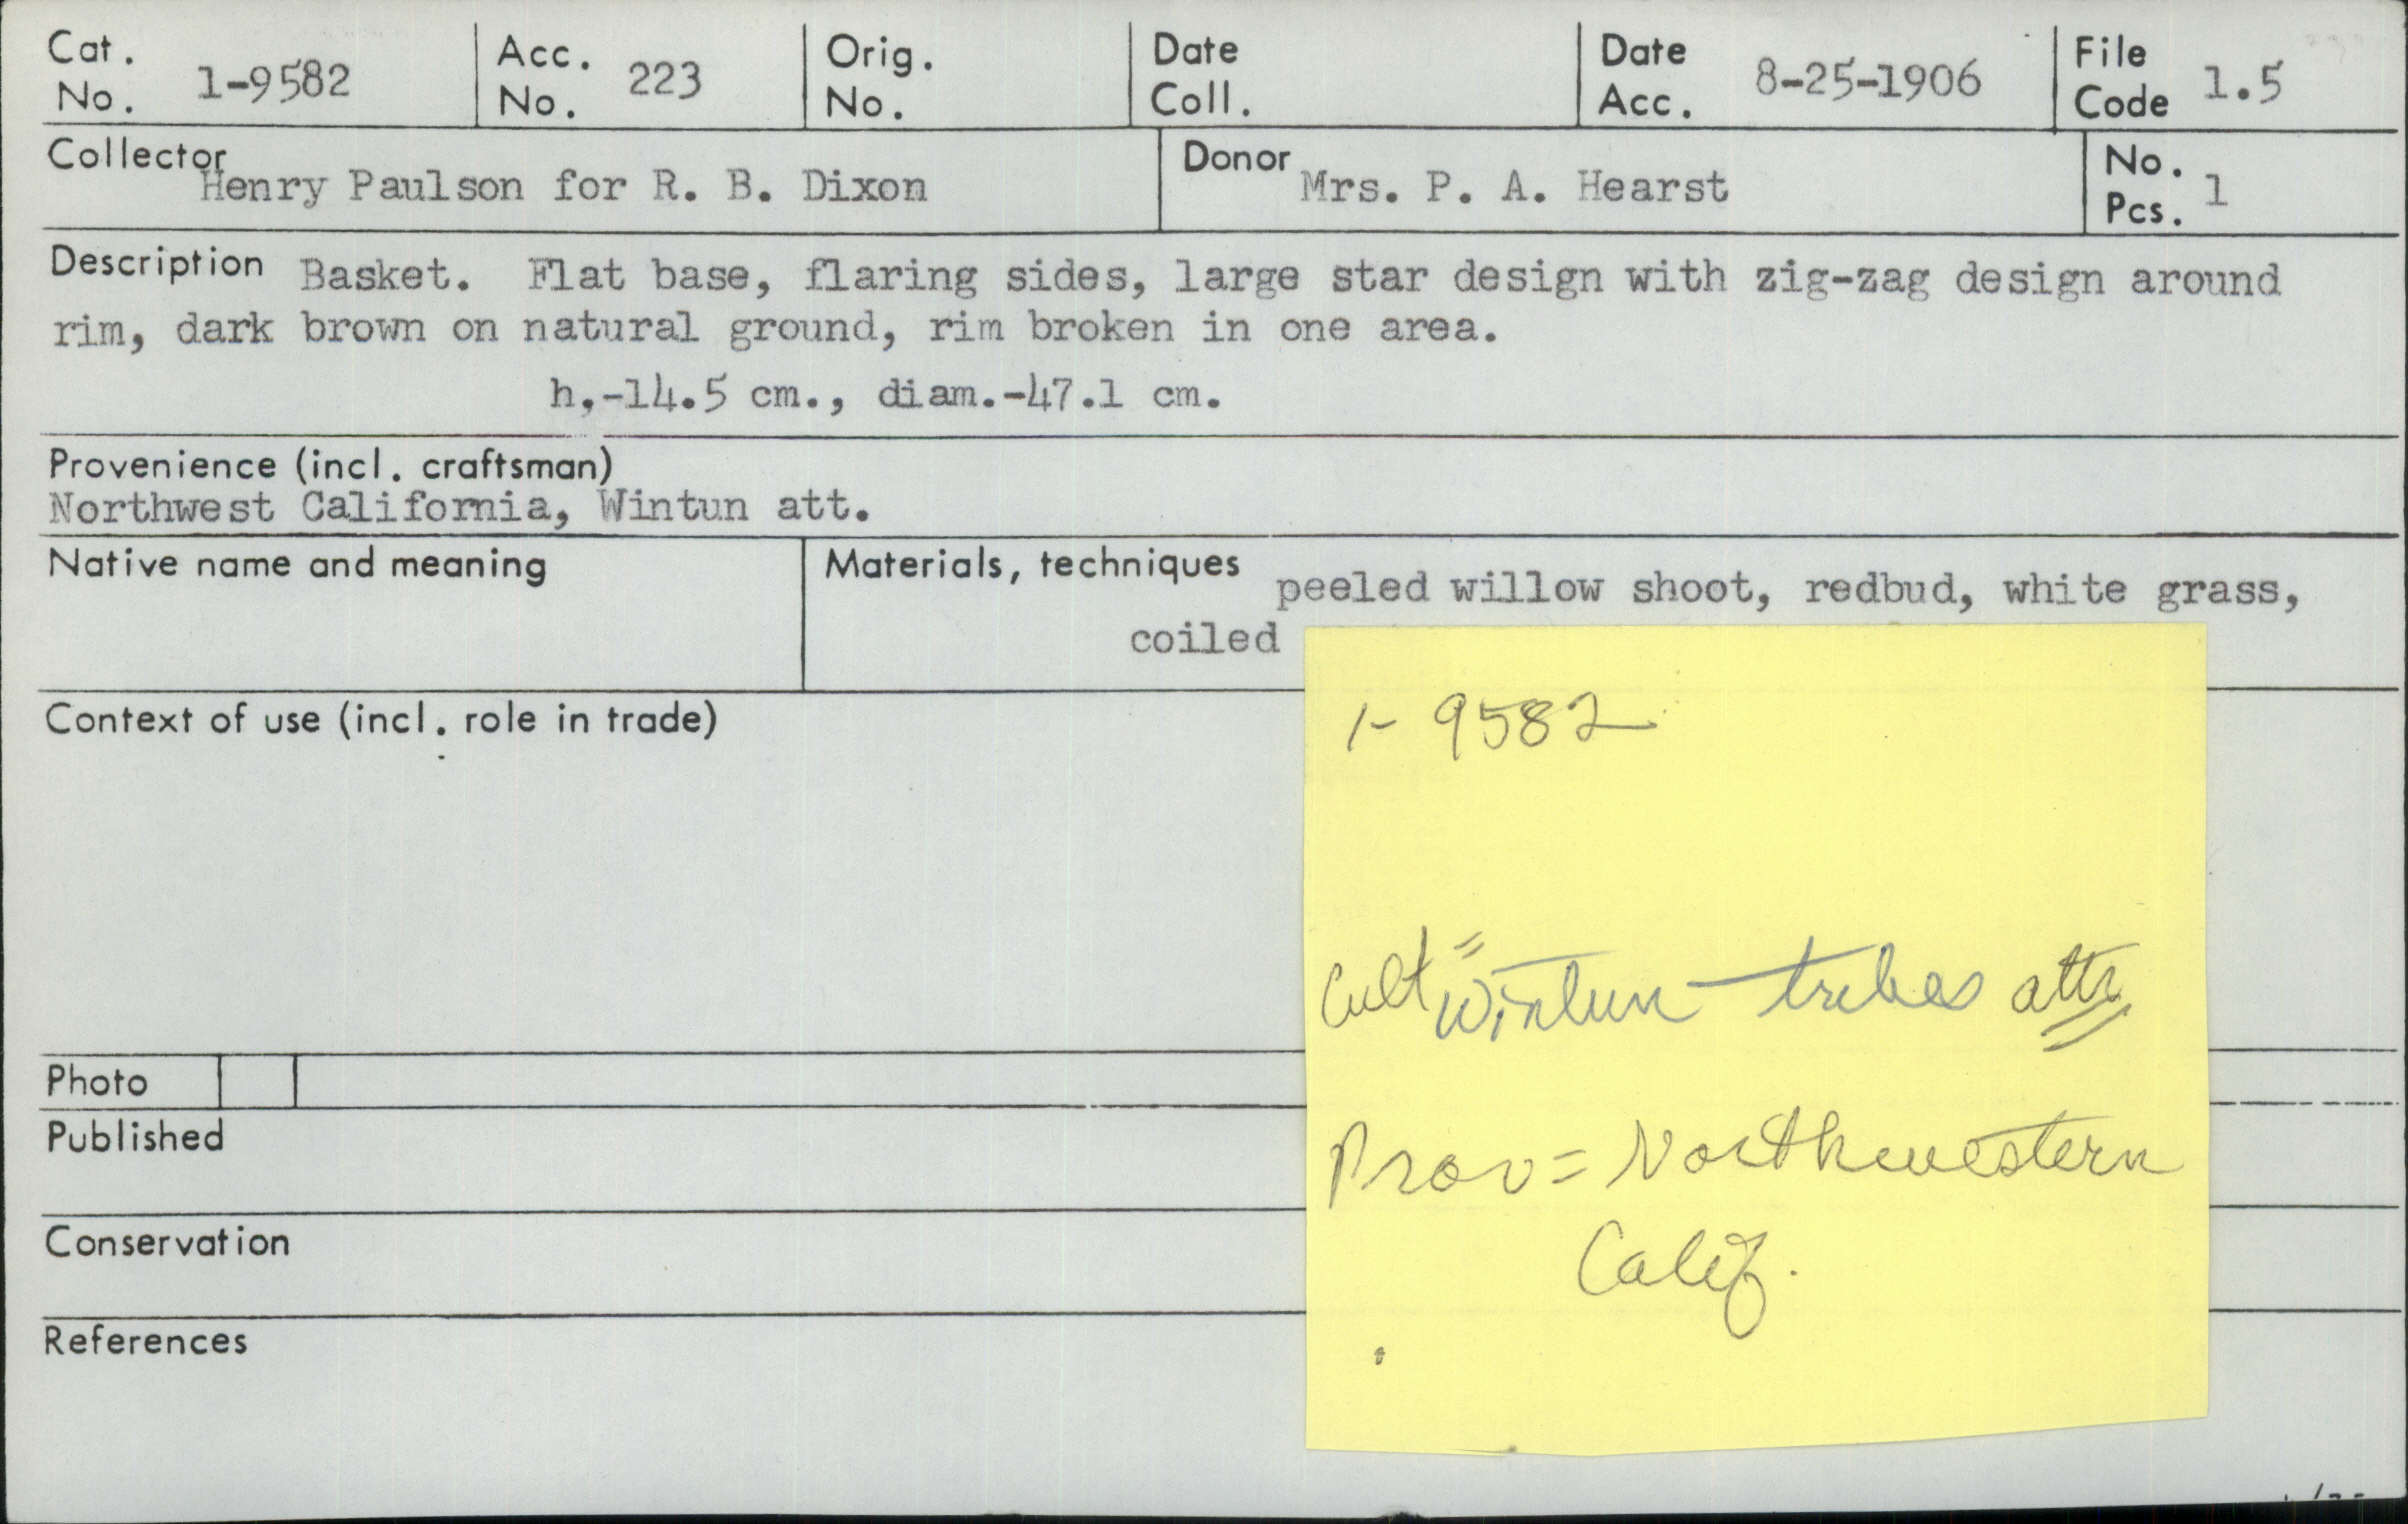 Cat. No. 1-9582 Acc. No. 223 Orig. No. Date Coll. Date Acc. 8-25-1906 File Code 1.5
Collector Henry Paulson for R. B. Dixon Donor Mrs. P. A. Hearst No. Pcs. 1
Description Basket. Flat base, flaring sides, large star design with zig-zag design around
rim, dark brown on natural ground, rim broken in one area.
h,-14.5 cm., diam.-47.1 cm.
Provenience (incl. craftsman)
Northwest California, Wintun att.
Native name and meaning Materials, techniques peeled willow shoot, redbud, white grass,
coiled
Context of use (incl. role in trade)
Photo
Published
Conservation
References
1-9582
Cult = Wintun tribes attr
Prov = Northwestern
Calif.